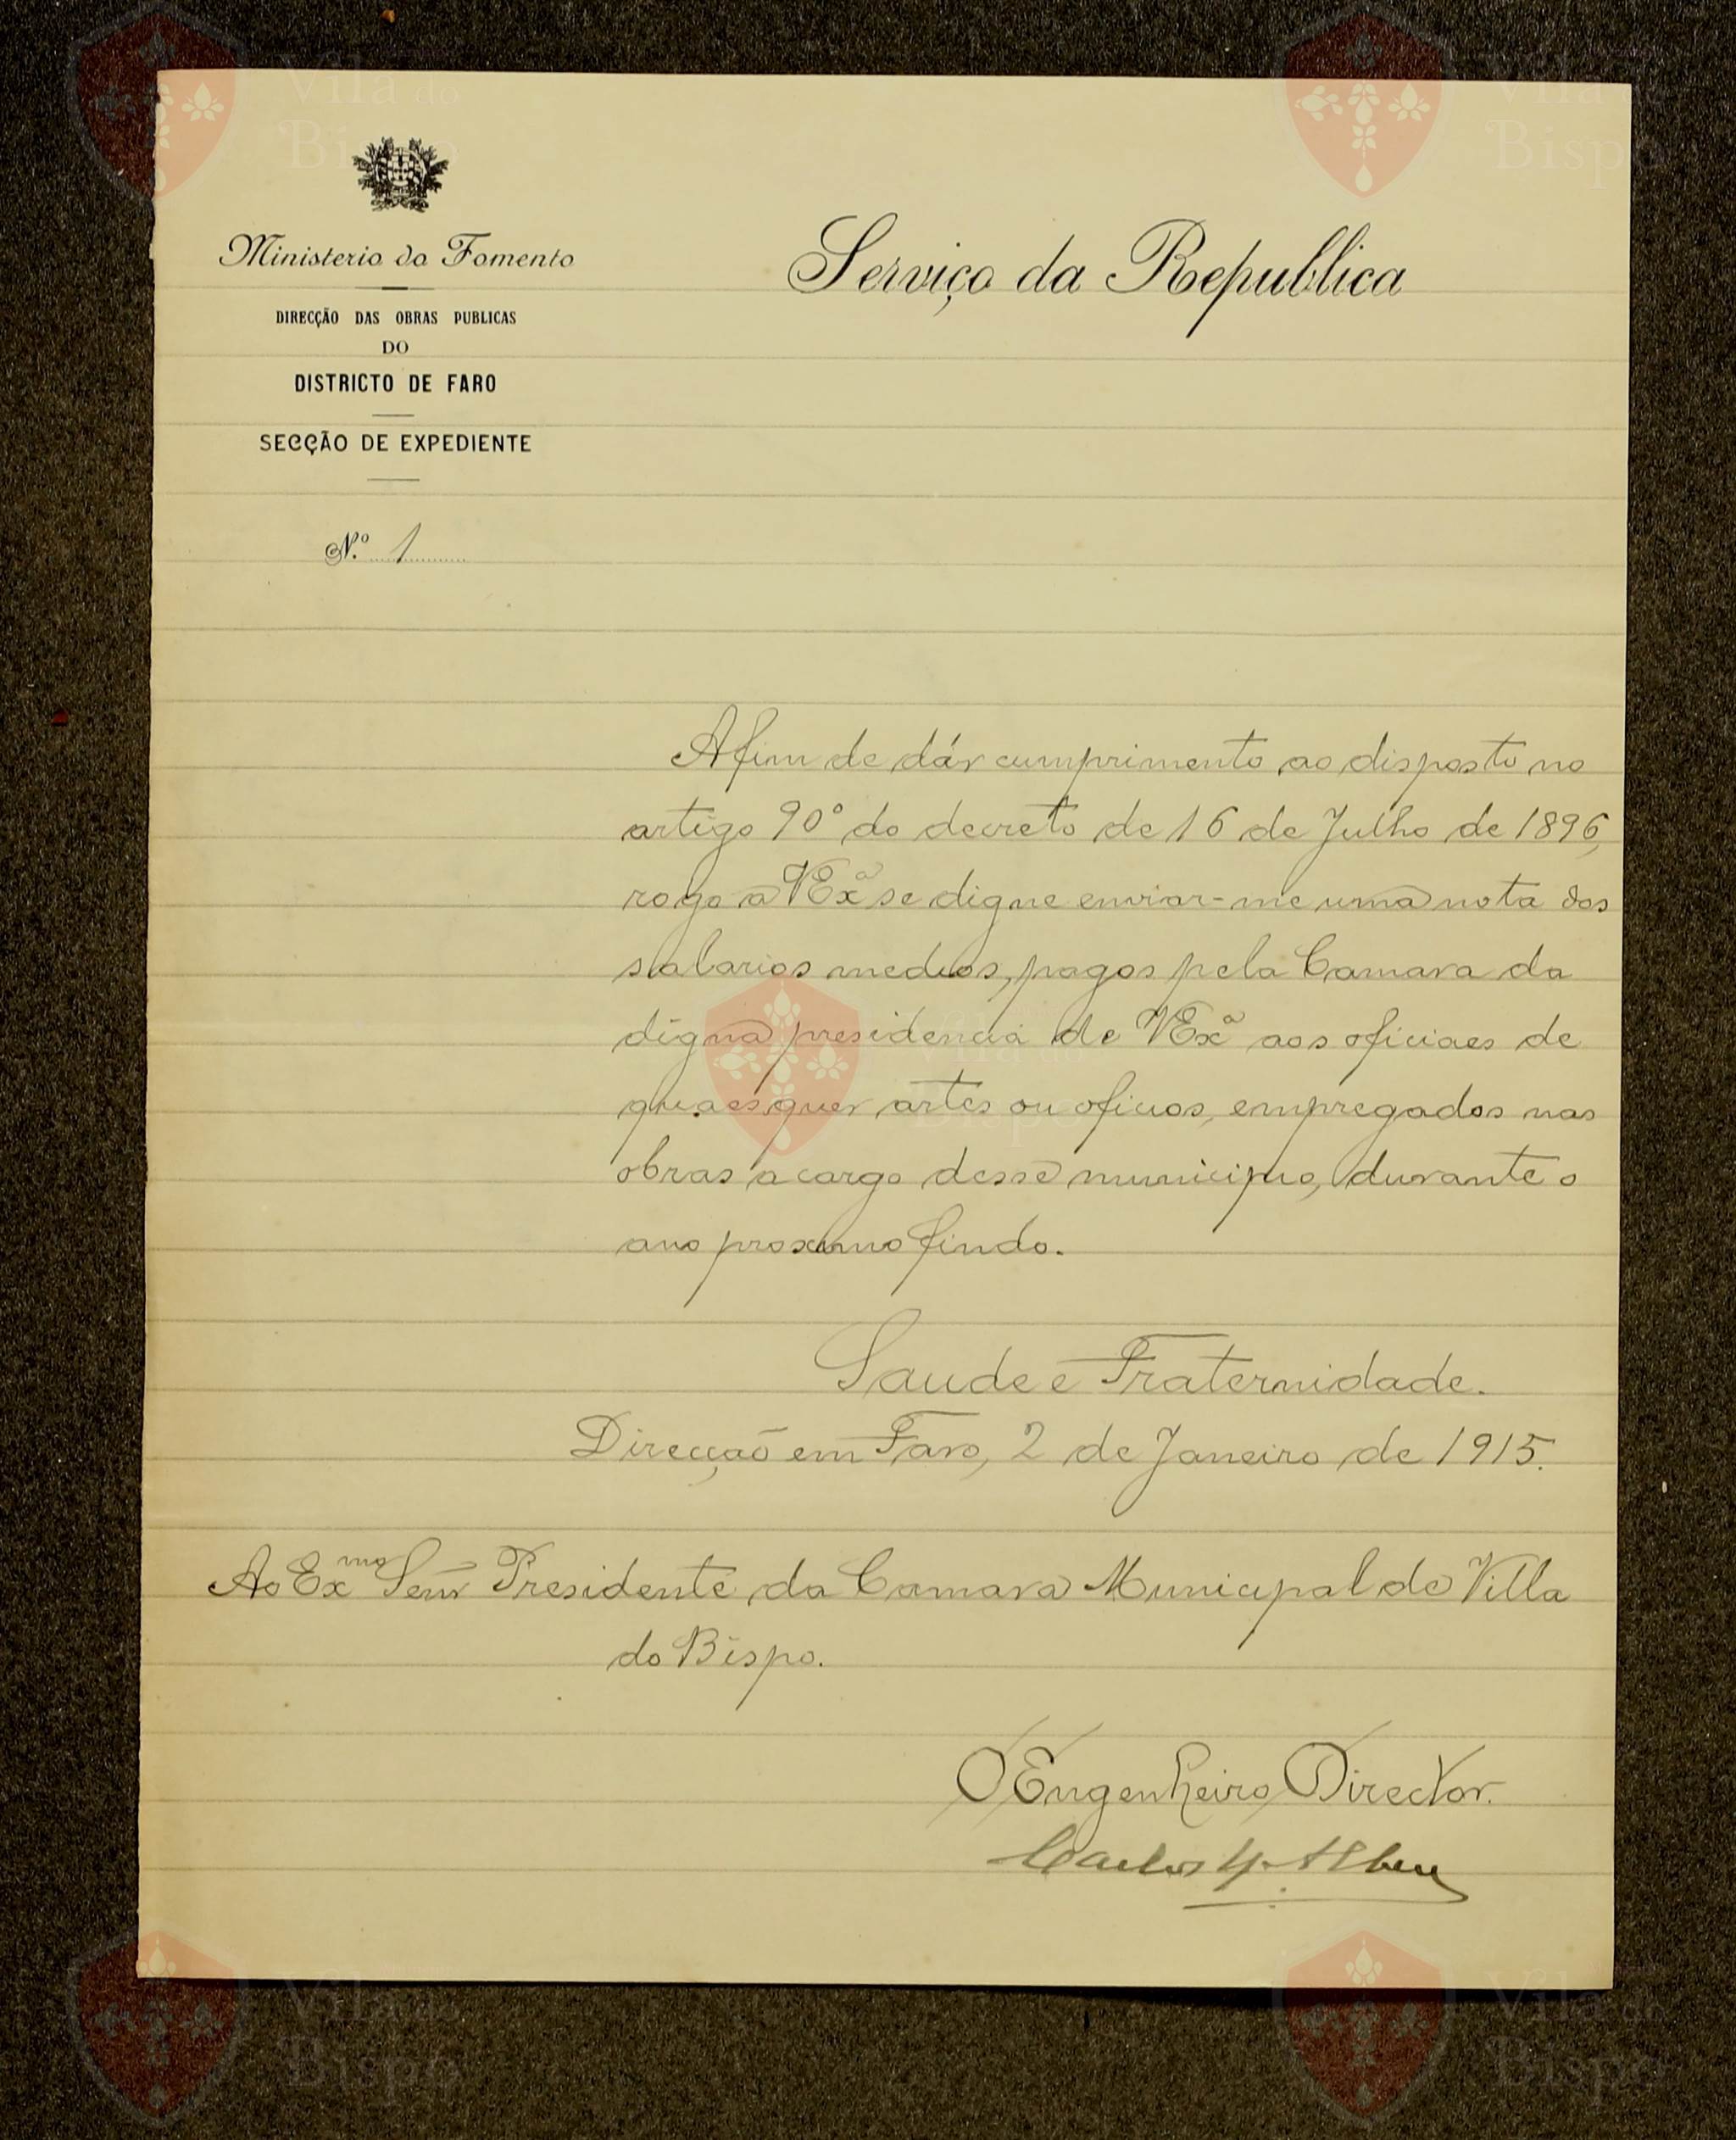 Ministerio do Fomento
DIRECÇÃO DAS OBRAS PUBLICAS
DO
DISTRICTO DE FARO
SECÇÃO DE EXPEDIENTE
N.º 1
Serviço da Republica
Afim de dár cumprimento ao disposto no
artigo 90º do decreto de 16 de Julho de 1896,
rogo a VExª se digne enviar-me uma nota dos
salarios medios, pagos pela Camara da
digna presidencia de VExª aos oficiaes de
quaesquer artes ou oficios, empregados nas
obras a cargo desse municipio, durante o
ano proximo findo.
Saude e Fraternidade.
Direcção em Faro, 2 de Janeiro de 1915.
Ao Exmo Senr Presidente da Camara Municipal de Villa
do Bispo.
O Engenheiro Director.
Carlos
Vila do
Bispo
Vila do
Bispo
Vila do
Bispo
Vila do
Bispo
Vila do
Bispo